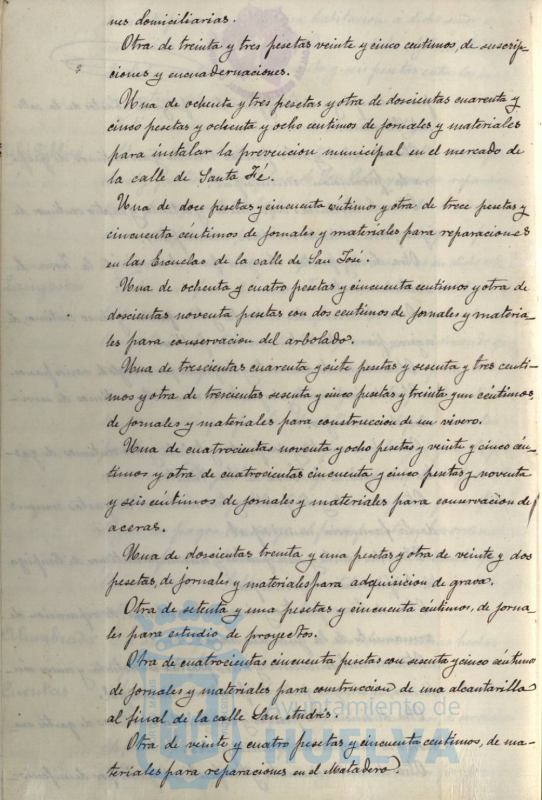 nes domiciliarias.
Otra de treinta y tres pesetas veinte y cinco centimos, de suscrip-
ciones y encuadernaciones.
Una de ochenta y tres pesetas y otra de doscientas cuarenta y
cinco pesetas y ochenta y ocho centimos de jornales y materiales
para instalar la prevencion municipal en el mercado de
la calle de Santa Fé.
Una de doce pesetas y cincuenta céntimos y otra de trece pesetas y
cincuenta céntimos de jornales y materiales para reparaciones
en las Escuelas de la calle de San José.
Una de ochenta y cuatro pesetas y cincuenta centimos y otra de
doscientas noventa pesetas con dos centimos de jornales y materia-
les para conservacion del arbolado.
Una de trescientas cuarenta y siete pesetas y sesenta y tres centi-
mos y otra de trescientas sesenta y cinco pesetas y treinta y un céntimos,
de jornales y materiales para construccion de un vivero.
Una de cuatrocientas noventa y ocho pesetas y veinte y cinco cén-
timos y otra de cuatrocientas cincuenta y cinco pesetas y noventa
y seis céntimos de jornales y materiales para conservacion de
aceras.
Una de doscientas treinta y una pesetas y otra de veinte y dos
pesetas, de jornales y materiales para adquisicion de grava.
Otra de setenta y una pesetas y cincuenta céntimos, de jorna-
les para estudio de proyectos.
Otra de cuatrocientas cincuenta pesetas con sesenta y cinco céntimos
de jornales y materiales para construccion de una alcantarilla
al final de la calle San Andres.
Otra de veinte y cuatro pesetas y cincuenta centimos, de ma-
teriales para reparaciones en el Matadero.
Ayuntamiento de
HUELVA